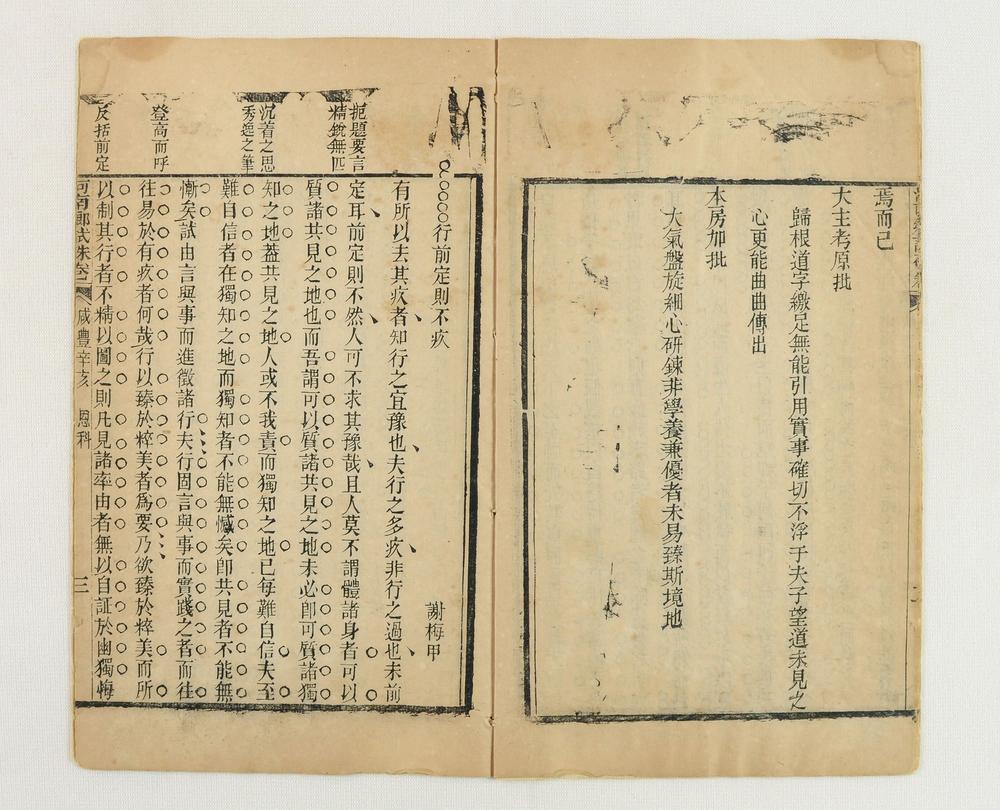 焉而已
大主考原批
歸根道字繳足無能引用實事確切不浮于夫子望道未見之
心更能曲曲傳出
本房加批
大氣盤旋細心研鍊非學養兼優者未易臻斯境地
扼題要言
精銳無匹
沉着之思
秀逸之筆
登高而呼
反括前定
行前定則不疚
謝梅甲
有所以去其疚者知行之宜豫也夫行之多疚非行之過也未前
定耳前定則不然人可不求其豫哉且人莫不謂體諸身者可以
質諸共見之地也而吾謂可以質諸共見之地未必卽可質諸獨
知之地蓋共見之地人或不我責而獨知之地已每難自信夫至
難自信者在獨知之地而獨知者不能無憾矣卽共見者不能無
慚矣試由言與事而進徵諸行夫行固言與事而實踐之者而往
往易於有疚者何哉行以臻於粹美者爲要乃欲臻於粹美而所
以制其行者不精以圖之則凡見諸率由者無以自証於幽獨悔
河南鄉試硃卷
咸豐辛亥 恩科
三